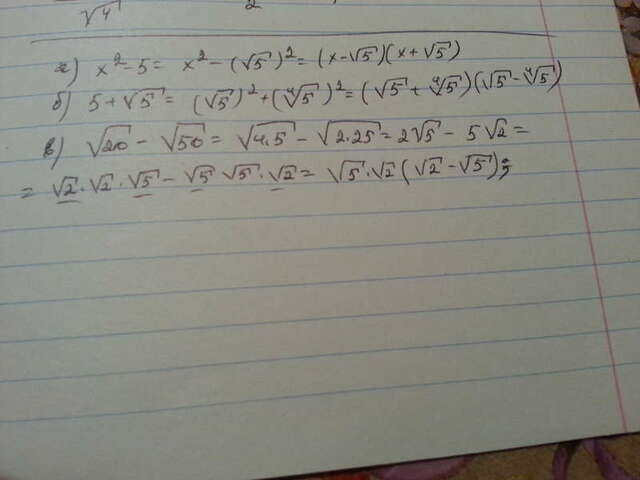 √4 2
а) x² - 5 = x² - (√5)² = (x - √5)(x + √5)
б) 5 + √5 = (√5)² + (∜5)² = (√5 + ∜5)(√5 - ∜5)
в) √20 - √50 = √4·5 - √2·25 = 2√5 - 5√2 =
= √2·√2·√5 - √5 √5·√2 = √5·√2(√2 - √5);